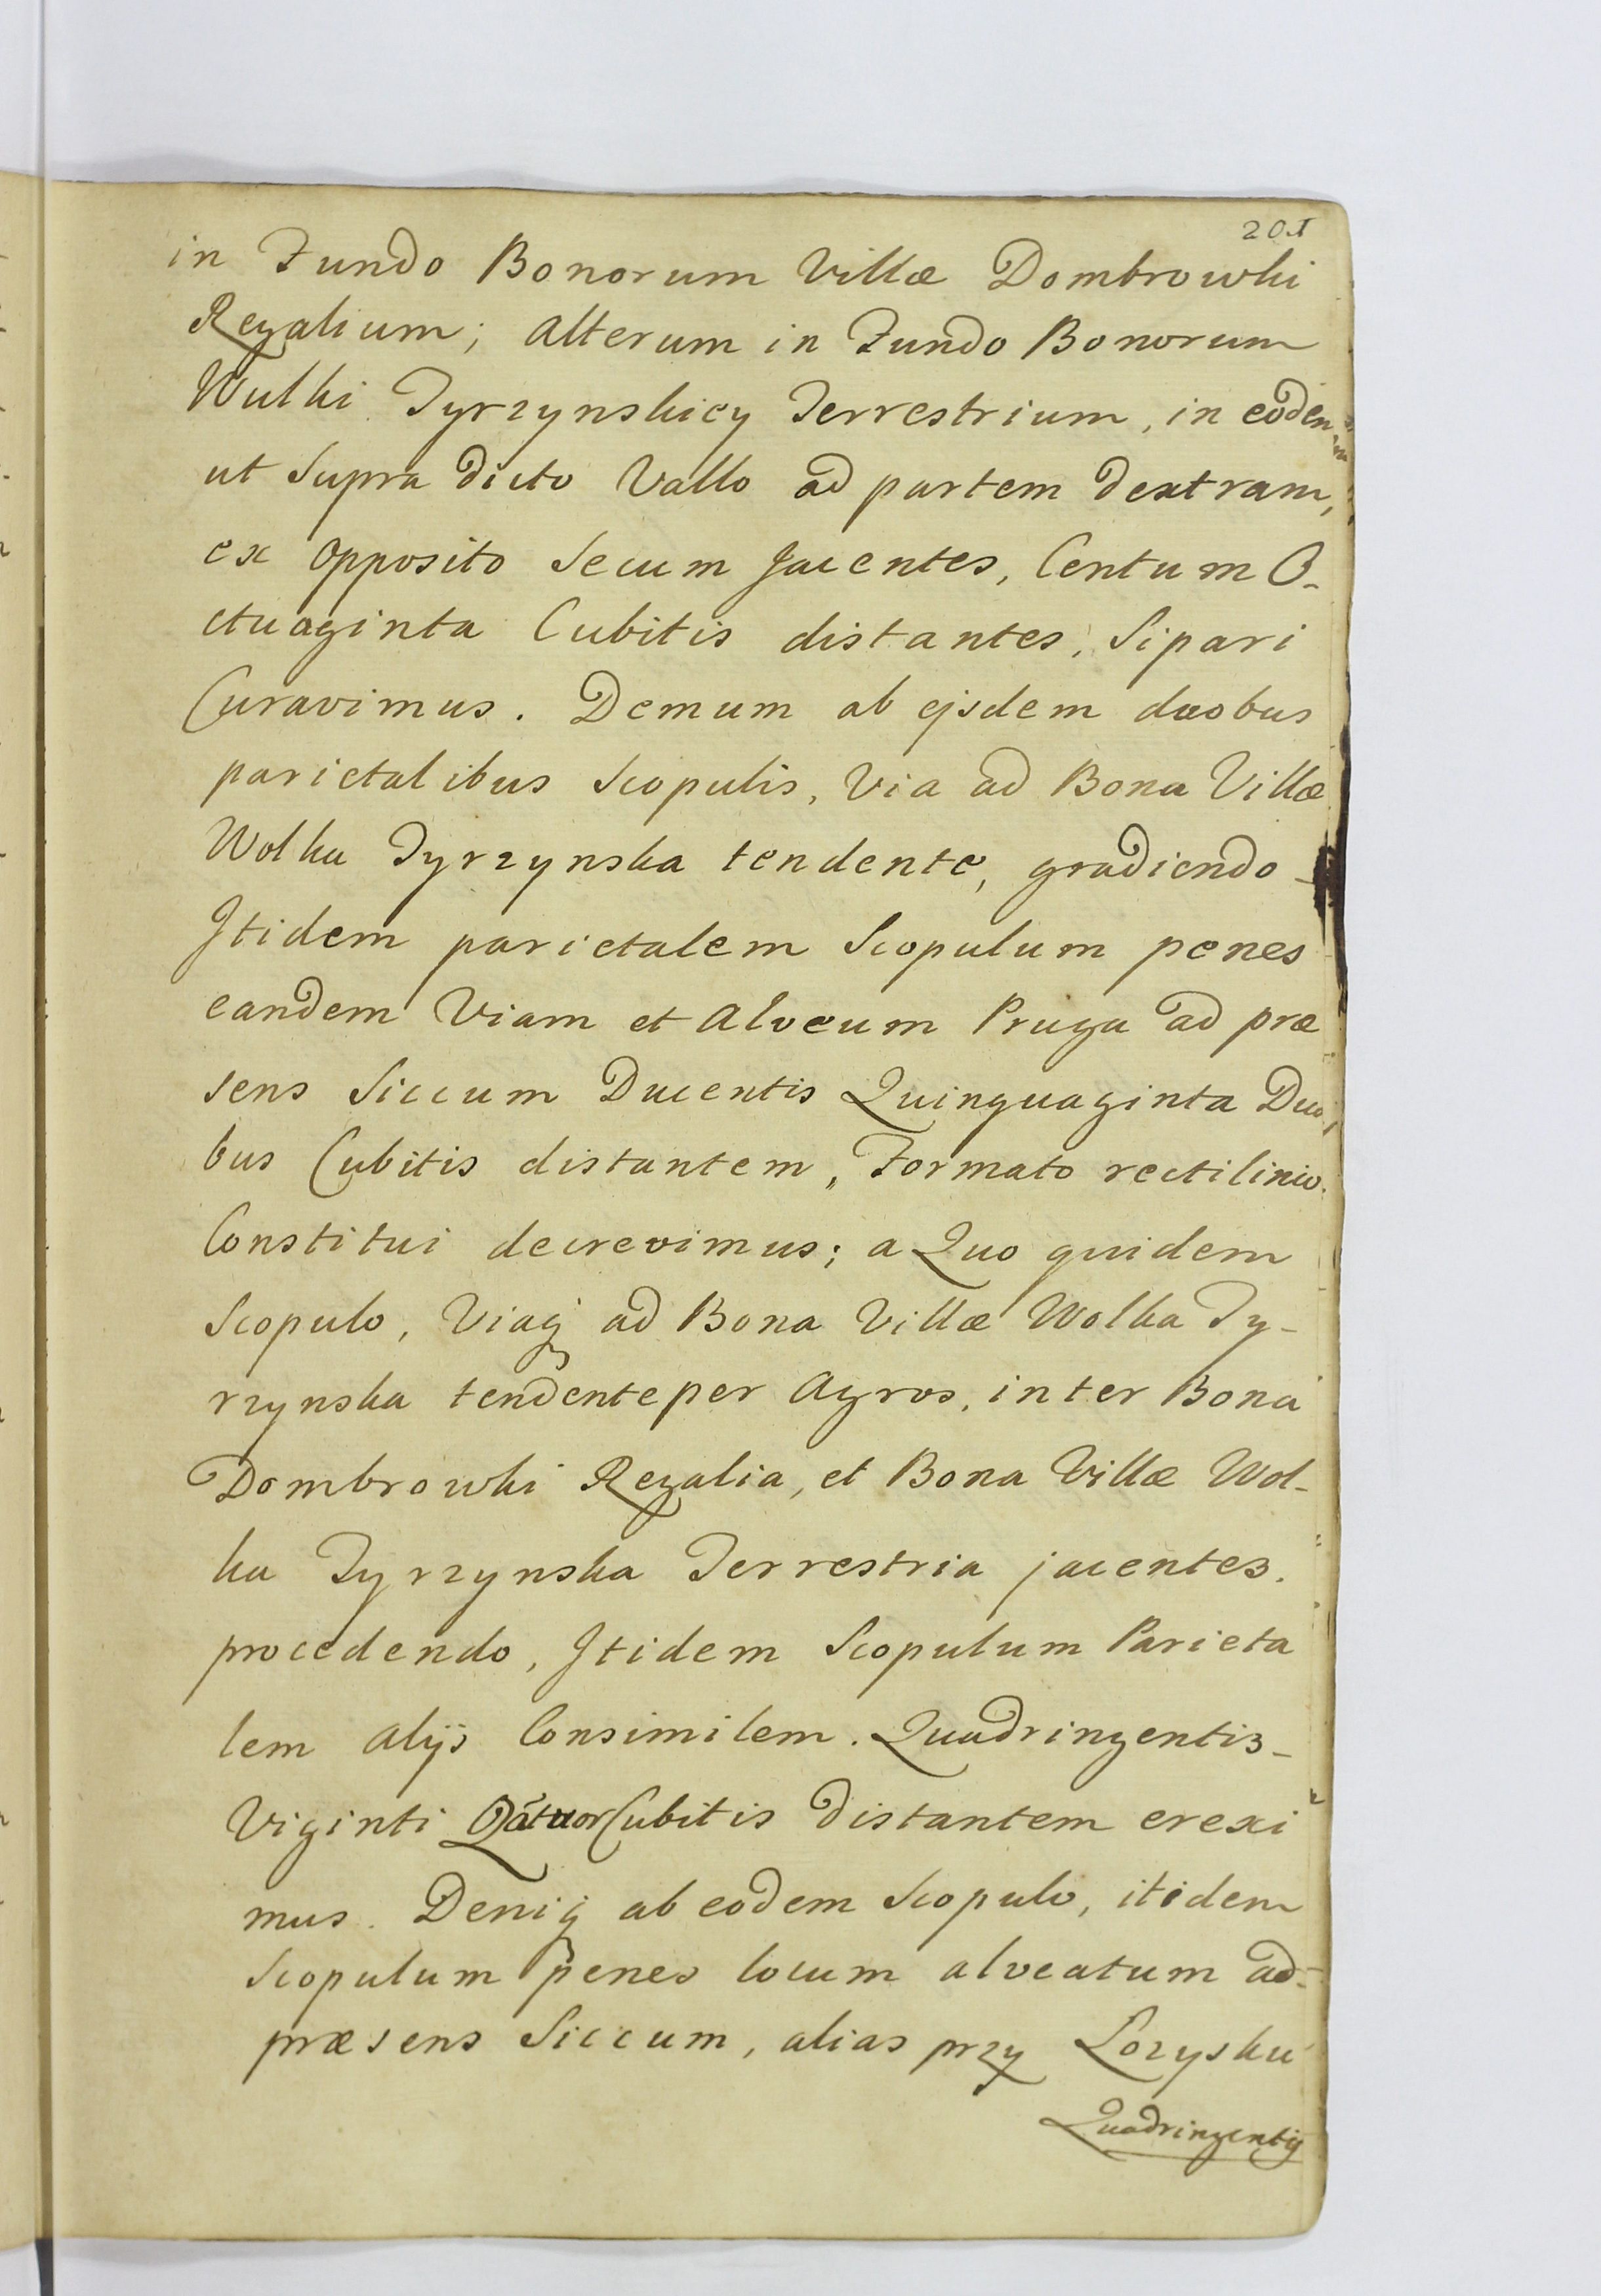 201
in Fundo Bonorum Villæ Dombrowki
Regalium; alterum in Fundo Bonorum
Wulki Tyrzynskiey Terrestrium, in eodem
ut Supra dicto Vallo ad partem dextram,
ex opposito Secum Jacentes, Centum O-
ctuaginta Cubitis distantes, Sipari
Curavimus. Demum ab ejsdem duobus
parietalibus Scopulis, Via ad Bona Villæ
Wolka Tyrzynska tendente, gradiendo -
Itidem parietalem Scopulum penes
eandem Viam et Alveum Pruga ad præ
sens Siccum Ducentis Quinquaginta Duo,
bus Cubitis distantem, Formato rectilinio.
Constitui decrevimus; a Quo quidem
Scopulo, Viaq ad Bona Villæ Wolka Ty-
rzynska tendente per Agros, inter Bona
Dombrowki Regalia, et Bona Villæ Wol-
ka Tyrzynska Terrestria jacentes.
procedendo, Itidem Scopulum Parieta
lem alijs Consimilem. Quadringentis -
Viginti Qátuor Cubitis distantem erexi
mus. Deniq ab eodem Scopulo, itidem
Scopulum penes locum alveatum ad-
præsens Siccum, alias przy Lozysku
Quadringentis